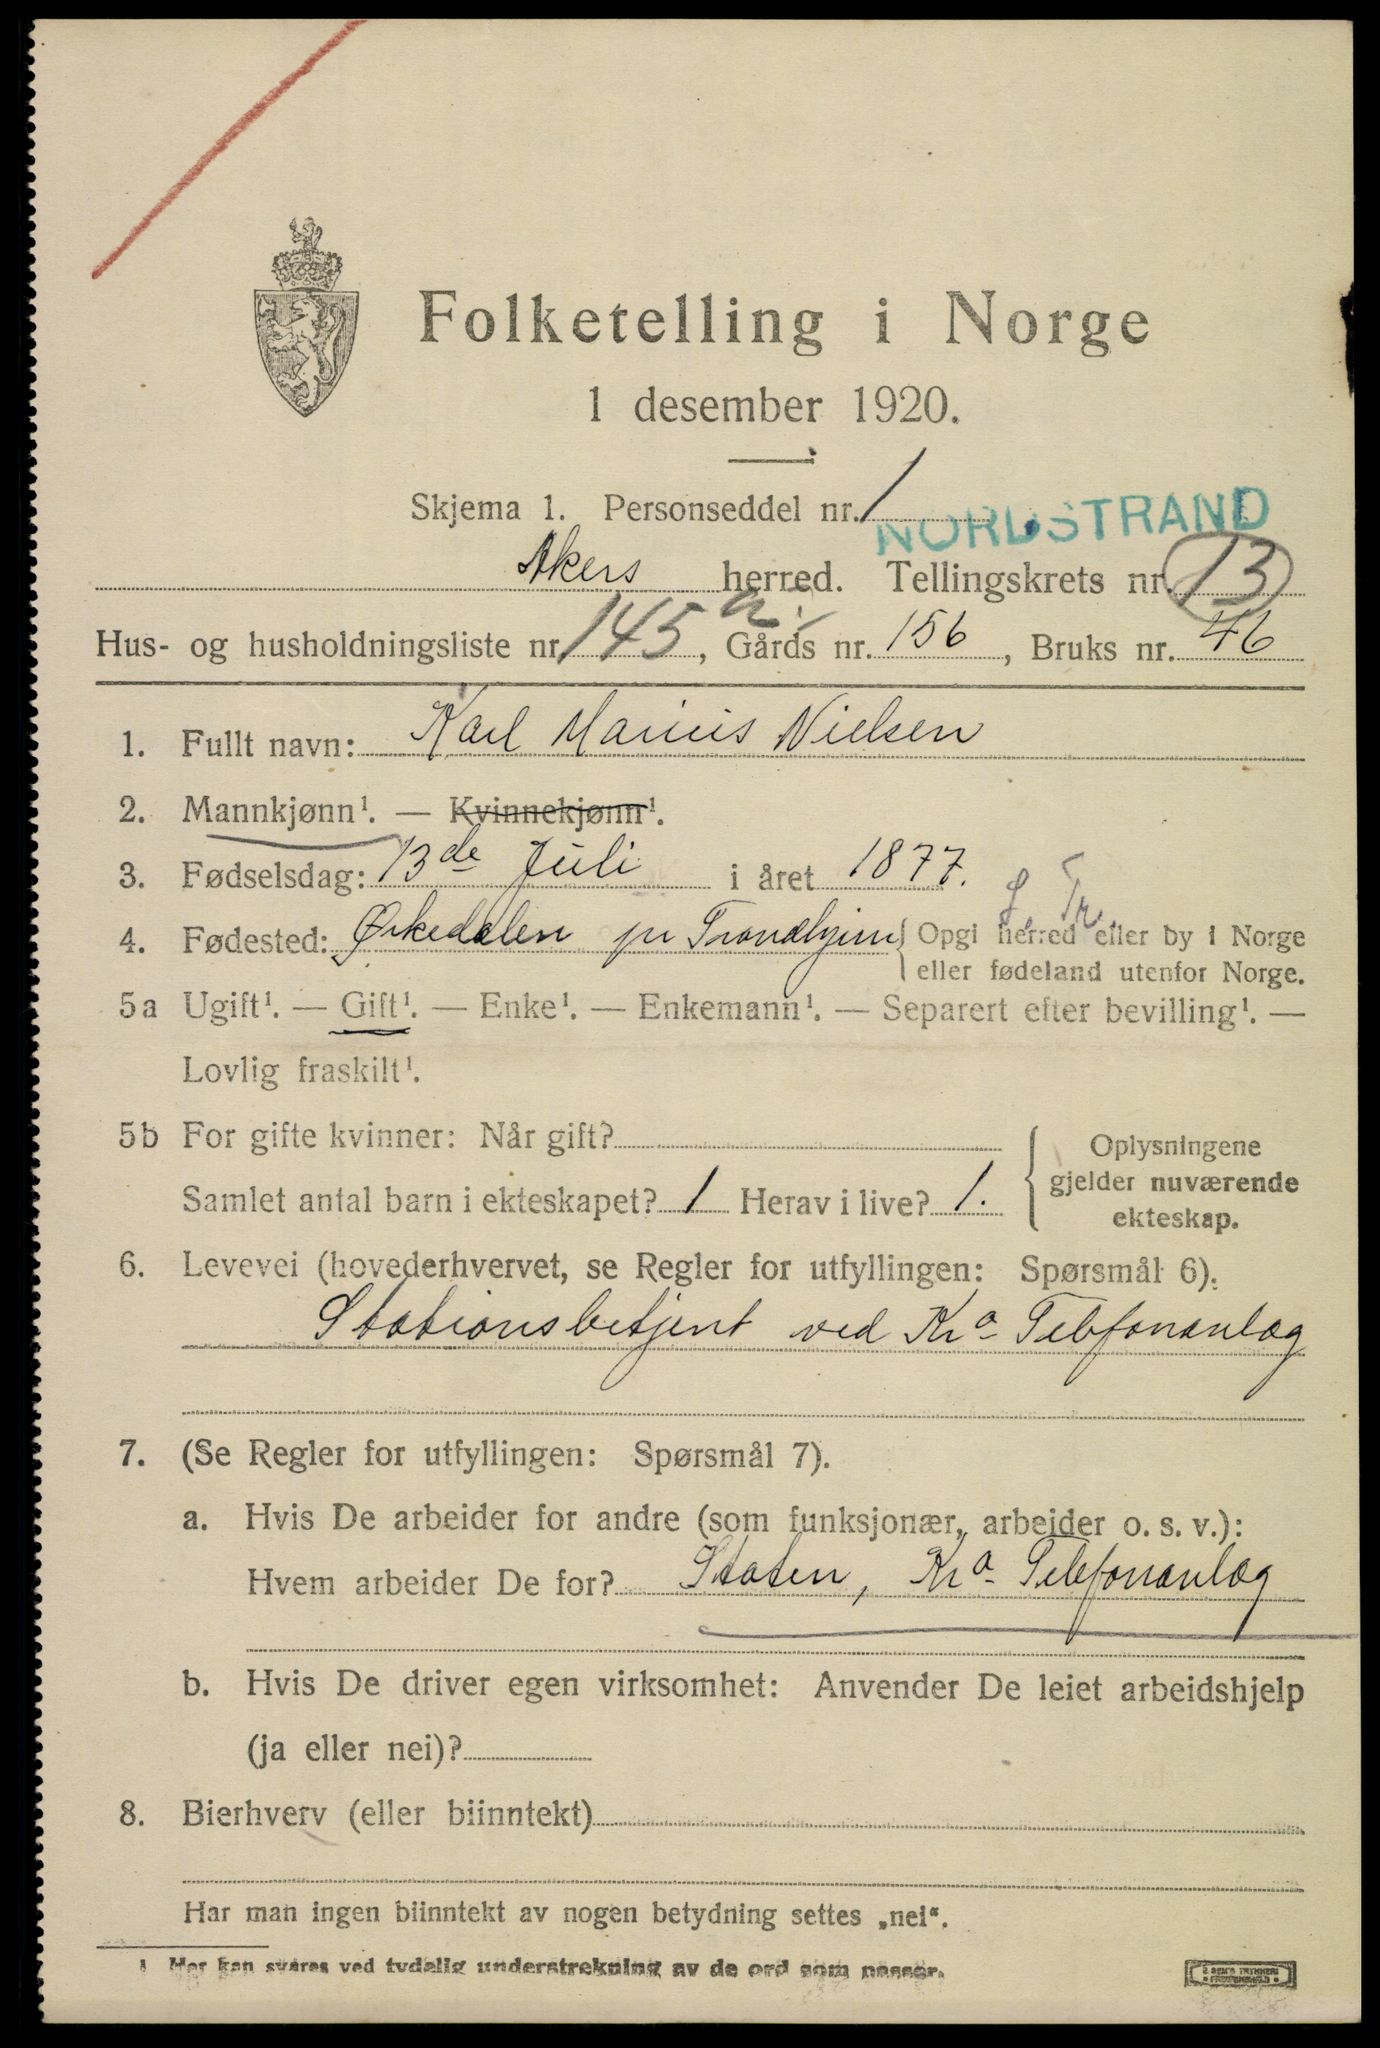 Folketelling i Norge
1 desember 1920.
Skjema 1. Personseddel nr. 1
NORDSTRAND
Akers herred. Tellingskrets nr. 13
Hus- og husholdningsliste nr. 145, Gårds nr. 156, Bruks nr. 46
1. Fullt navn: Karl Marius Nielsen
2. Mannkjønn¹. — Kvinnekjønn¹.
3. Fødselsdag: 13de Juli i året 1877.
4. Fødested: Ørkedalen pr Trondhjem { Opgi herred eller by i Norge
eller fødeland utenfor Norge.
5a Ugift¹. — Gift¹. — Enke¹. — Enkemann¹. — Separert efter bevilling¹. —
Lovlig fraskilt¹.
5b For gifte kvinner: Når gift?
Samlet antal barn i ekteskapet? 1 Herav i live? 1.
Oplysningene
gjelder nuværende
ekteskap.
6. Levevei (hovederhvervet, se Regler for utfyllingen: Spørsmål 6).
Stationsbetjent ved Kra Telefonanlæg
7. (Se Regler for utfyllingen: Spørsmål 7).
a. Hvis De arbeider for andre (som funksjonær, arbeider o. s. v.):
Hvem arbeider De for? Staten, Kra Telefonanlæg
b. Hvis De driver egen virksomhet: Anvender De leiet arbeidshjelp
(ja eller nei)?
8. Bierhverv (eller biinntekt)
Har man ingen biinntekt av nogen betydning settes „nei“.
1 Her kan svares ved tydelig understrekning av de ord som passer.